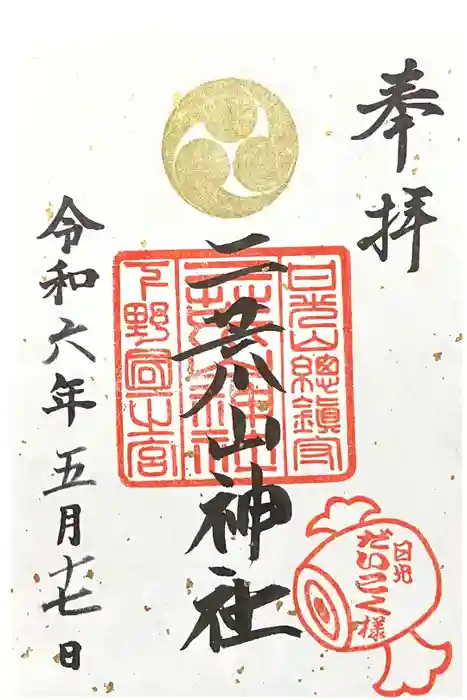 奉拝
日光山總鎮守
二荒山神社
下野國一之宮
二荒山神社
令和六年五月十七日
日光
だいこく様